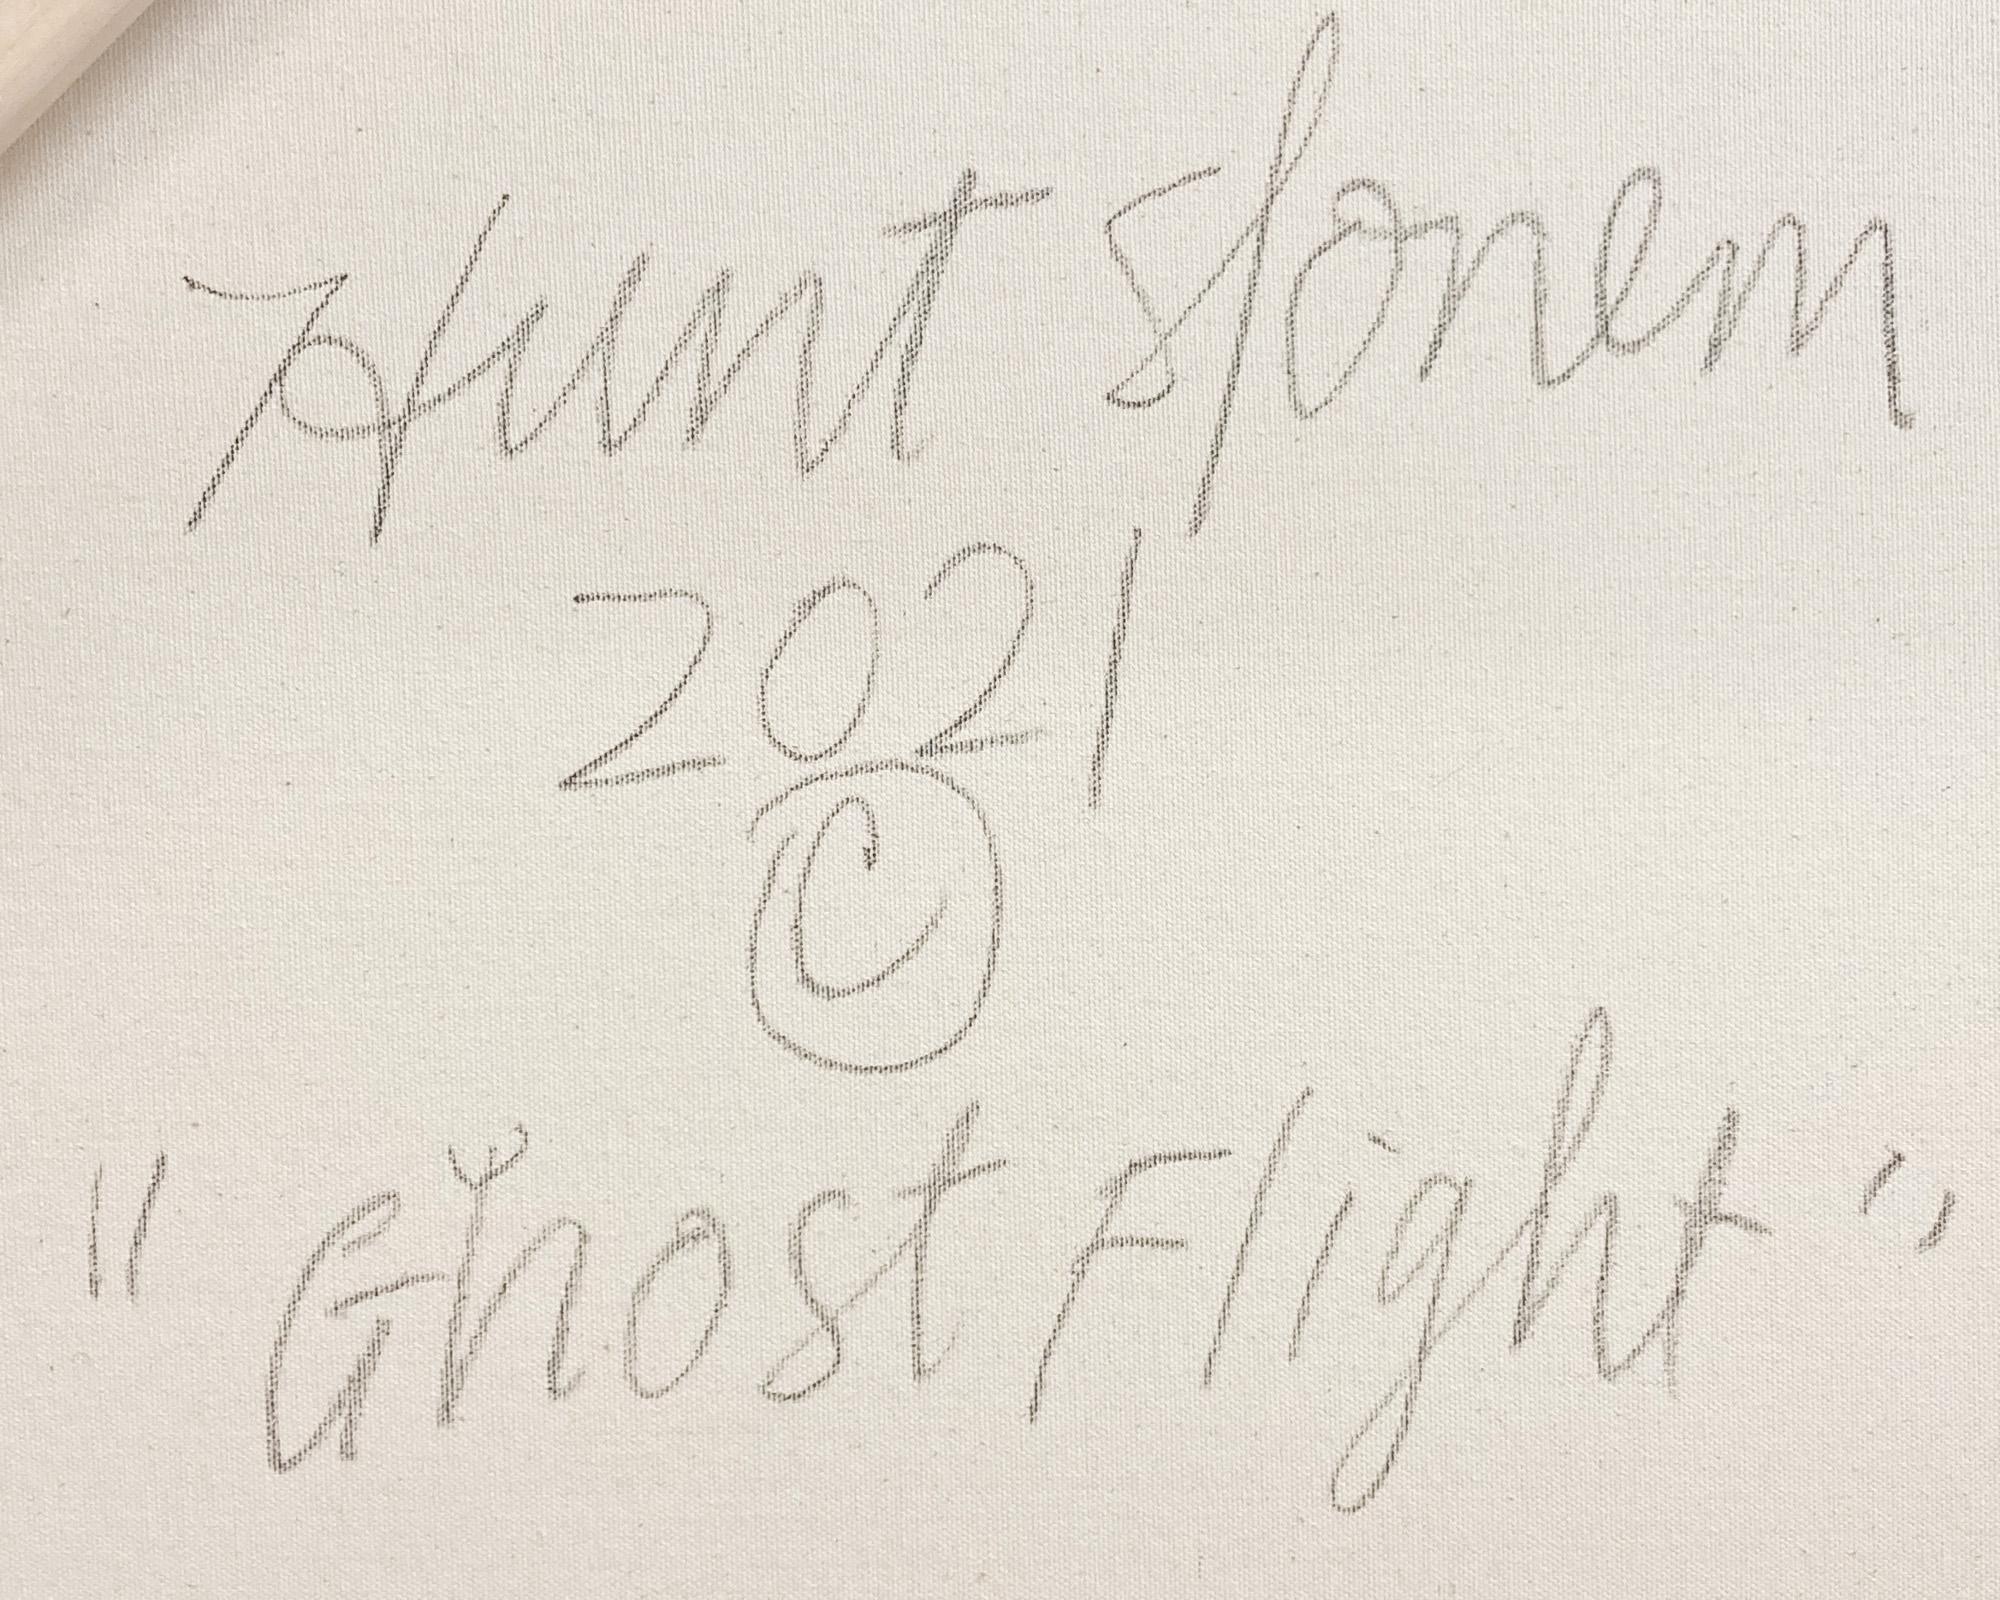 Hunt Slonem
2021
©
"Ghost Flight"